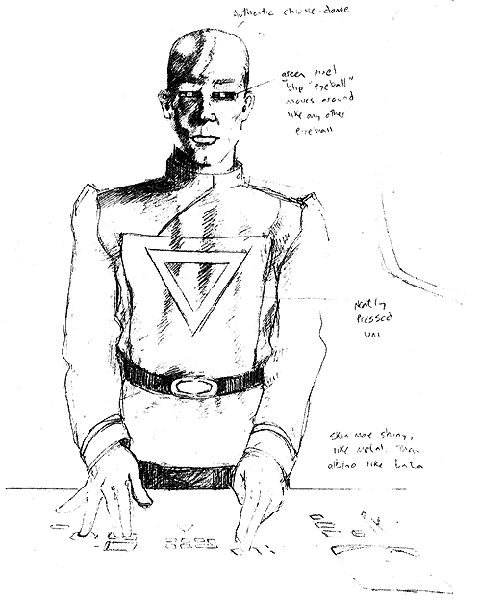 Authentic chrome-dome
green pixel
"blip "eyeball"
moves around
like any other
eyeball
Neatly
Pressed
Uni
Skin more shiny,
like metal. Than
albino like Data